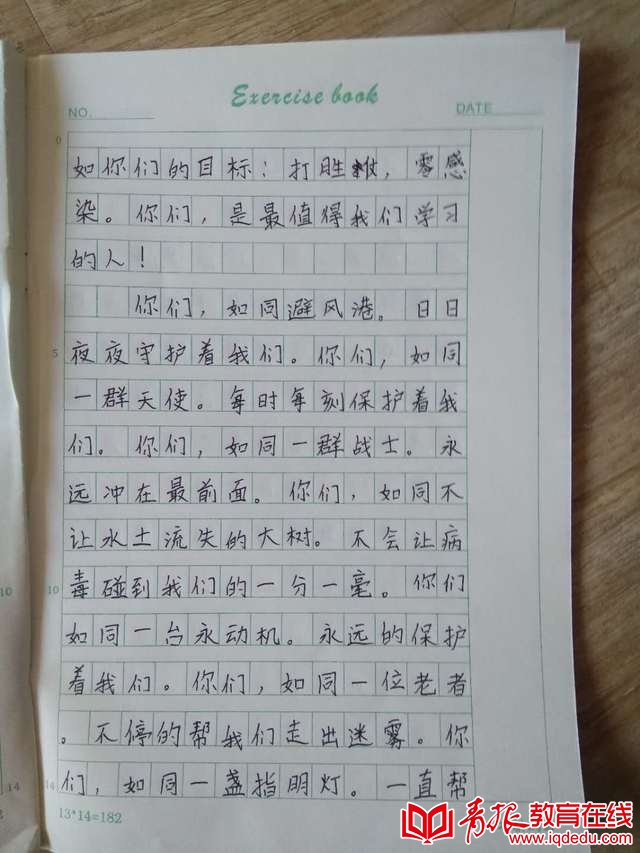 Exercise book
NO.
DATE
0
如你们的目标：打胜仗，零感
染。你们，是最值得我们学习
的人！
你们，如同避风港。日日
5
夜夜守护着我们。你们，如同
一群天使。每时每刻保护着我
们。你们，如同一群战士。永
远冲在最前面。你们，如同不
让水土流失的大树。不会让病
10
10
毒碰到我们的一分一毫。你们
如同一台永动机。永远的保护
着我们。你们，如同一位老者
。不停的帮我们走出迷雾。你
14
14
们，如同一盏指明灯。一直帮
13*14=182
青报教育在线
www.iqdedu.com